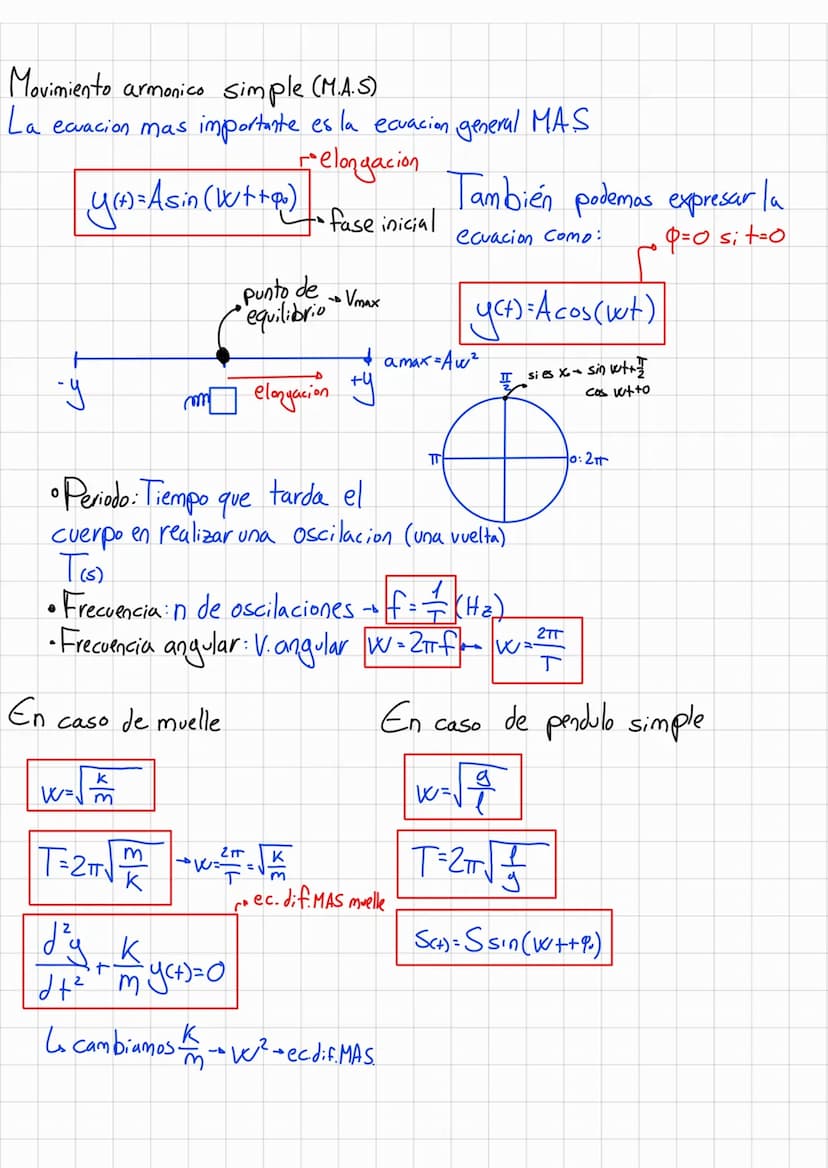 Movimiento armonico simple (M.A.S)
La ecuacion mas importante es la ecuacion general MAS
elongacion
y(t)=Asin(wt+φ₀)
fase inicial
También podemas expresar la
ecuacion como:
φ=0 si t=0
y(t)=Acos(wt)
punto de
equilibrio → Vmax
-y
+y
amax=Aw²
m
elongacion
π/2
si es x → sin wt+π/2
cos wt+0
π
0:2π
• Periodo: Tiempo que tarda el
cuerpo en realizar una oscilacion (una vuelta)
T(s)
• Frecuencia: n de oscilaciones → f=1/T (Hz)
· Frecuencia angular: V. angular w=2πf ↔ w=2π/T
En caso de muelle
w=√(k/m)
T=2π√(m/k) → w=2π/T=√(k/m)
→ ec. dif. MAS muelle
d²y/dt²+k/m y(t)=0
↳ cambiamos k/m → w² → ec dif. MAS.
En caso de pendulo simple
w=√(g/l)
T=2π√(l/g)
S(t)=S sin(wt+φ₀)